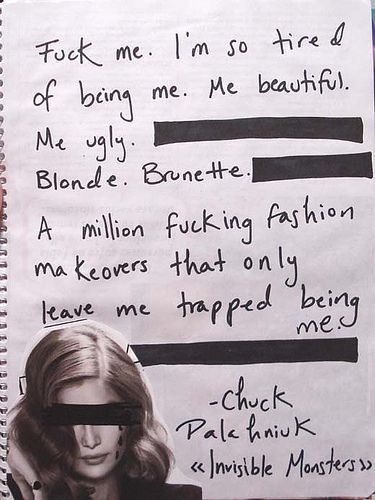 Fuck me. I'm so tired
of being me. Me beautiful.
Me ugly.
Blonde. Brunette.
A million fucking fashion
makeovers that only
leave me trapped being
me.
-Chuck
Palahniuk
«Invisible Monsters»